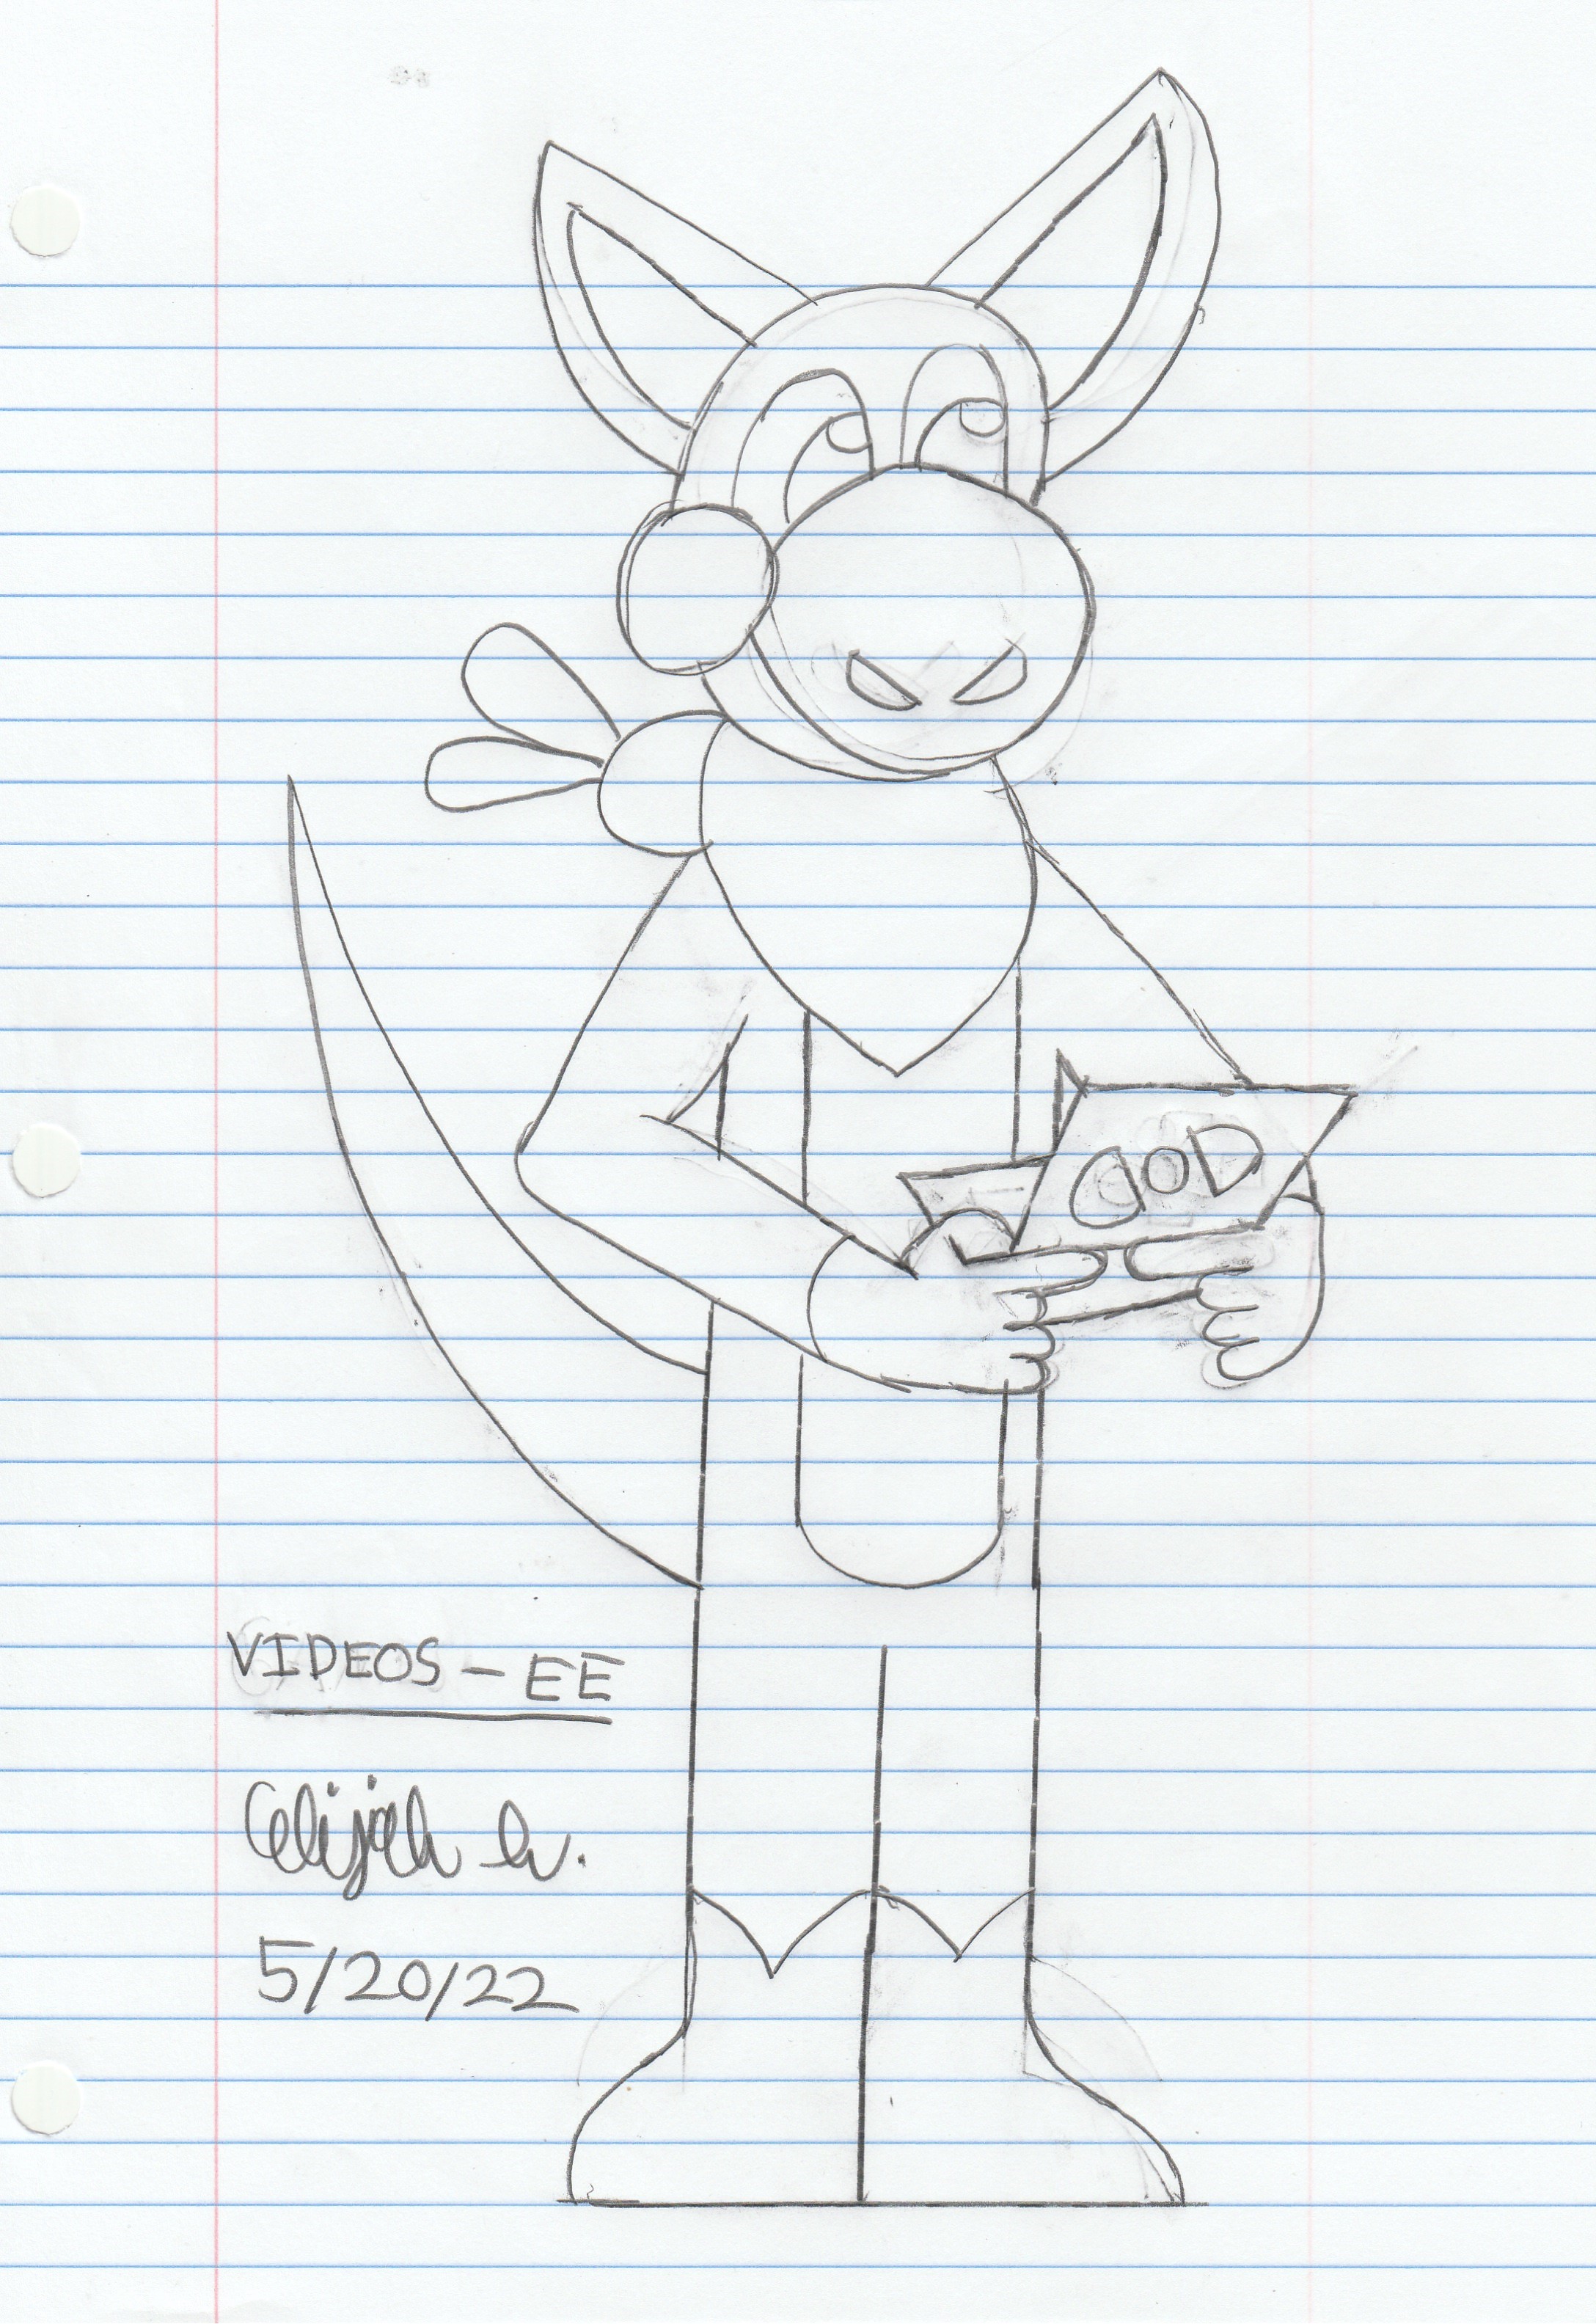 COD
VIDEOS - EE
Elijah W.
5/20/22